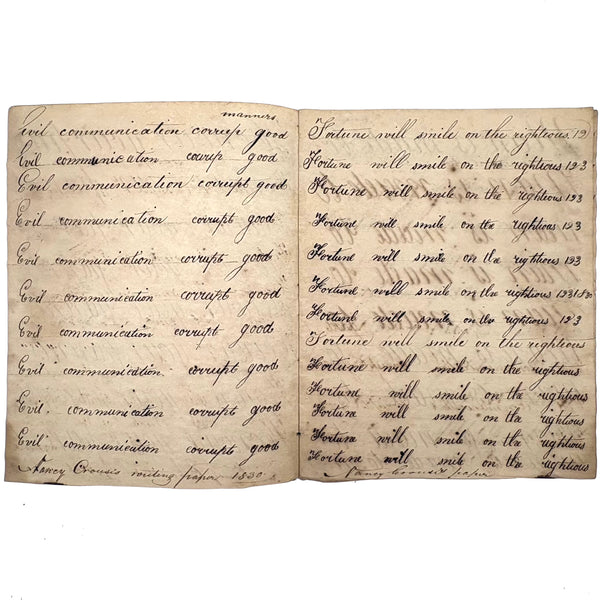 manners
Evil communication corrup good
Evil communication courup good
Evil communication corrupt good
Evil communication corrupt good
Evil communication corrupt good
Evil communication corrupt good
Evil communication corrupt good
Evil communication corrupt good
Evil communication corrupt good
Evil communication corrupt good
Nancy Crousis writing paper 1830
Fortune will smile on the righteous. 12
Fortune will smile on the rightious 123
Fortune will smile on the rightious 123
Fortune will smile on the rightious 123
Fortune will smile on the rightious 123
Fortune will smile on the rightious 1231830
Fortune will smile on the rightious 123
Fortune will smile on the righteous
Fortune will smile on the rightious
Fortune will smile on the rightious
Fortune will smile on the rightious
Fortune will smile on the rightious
Fortune will smile on the rightious
Nancy Crousis paper